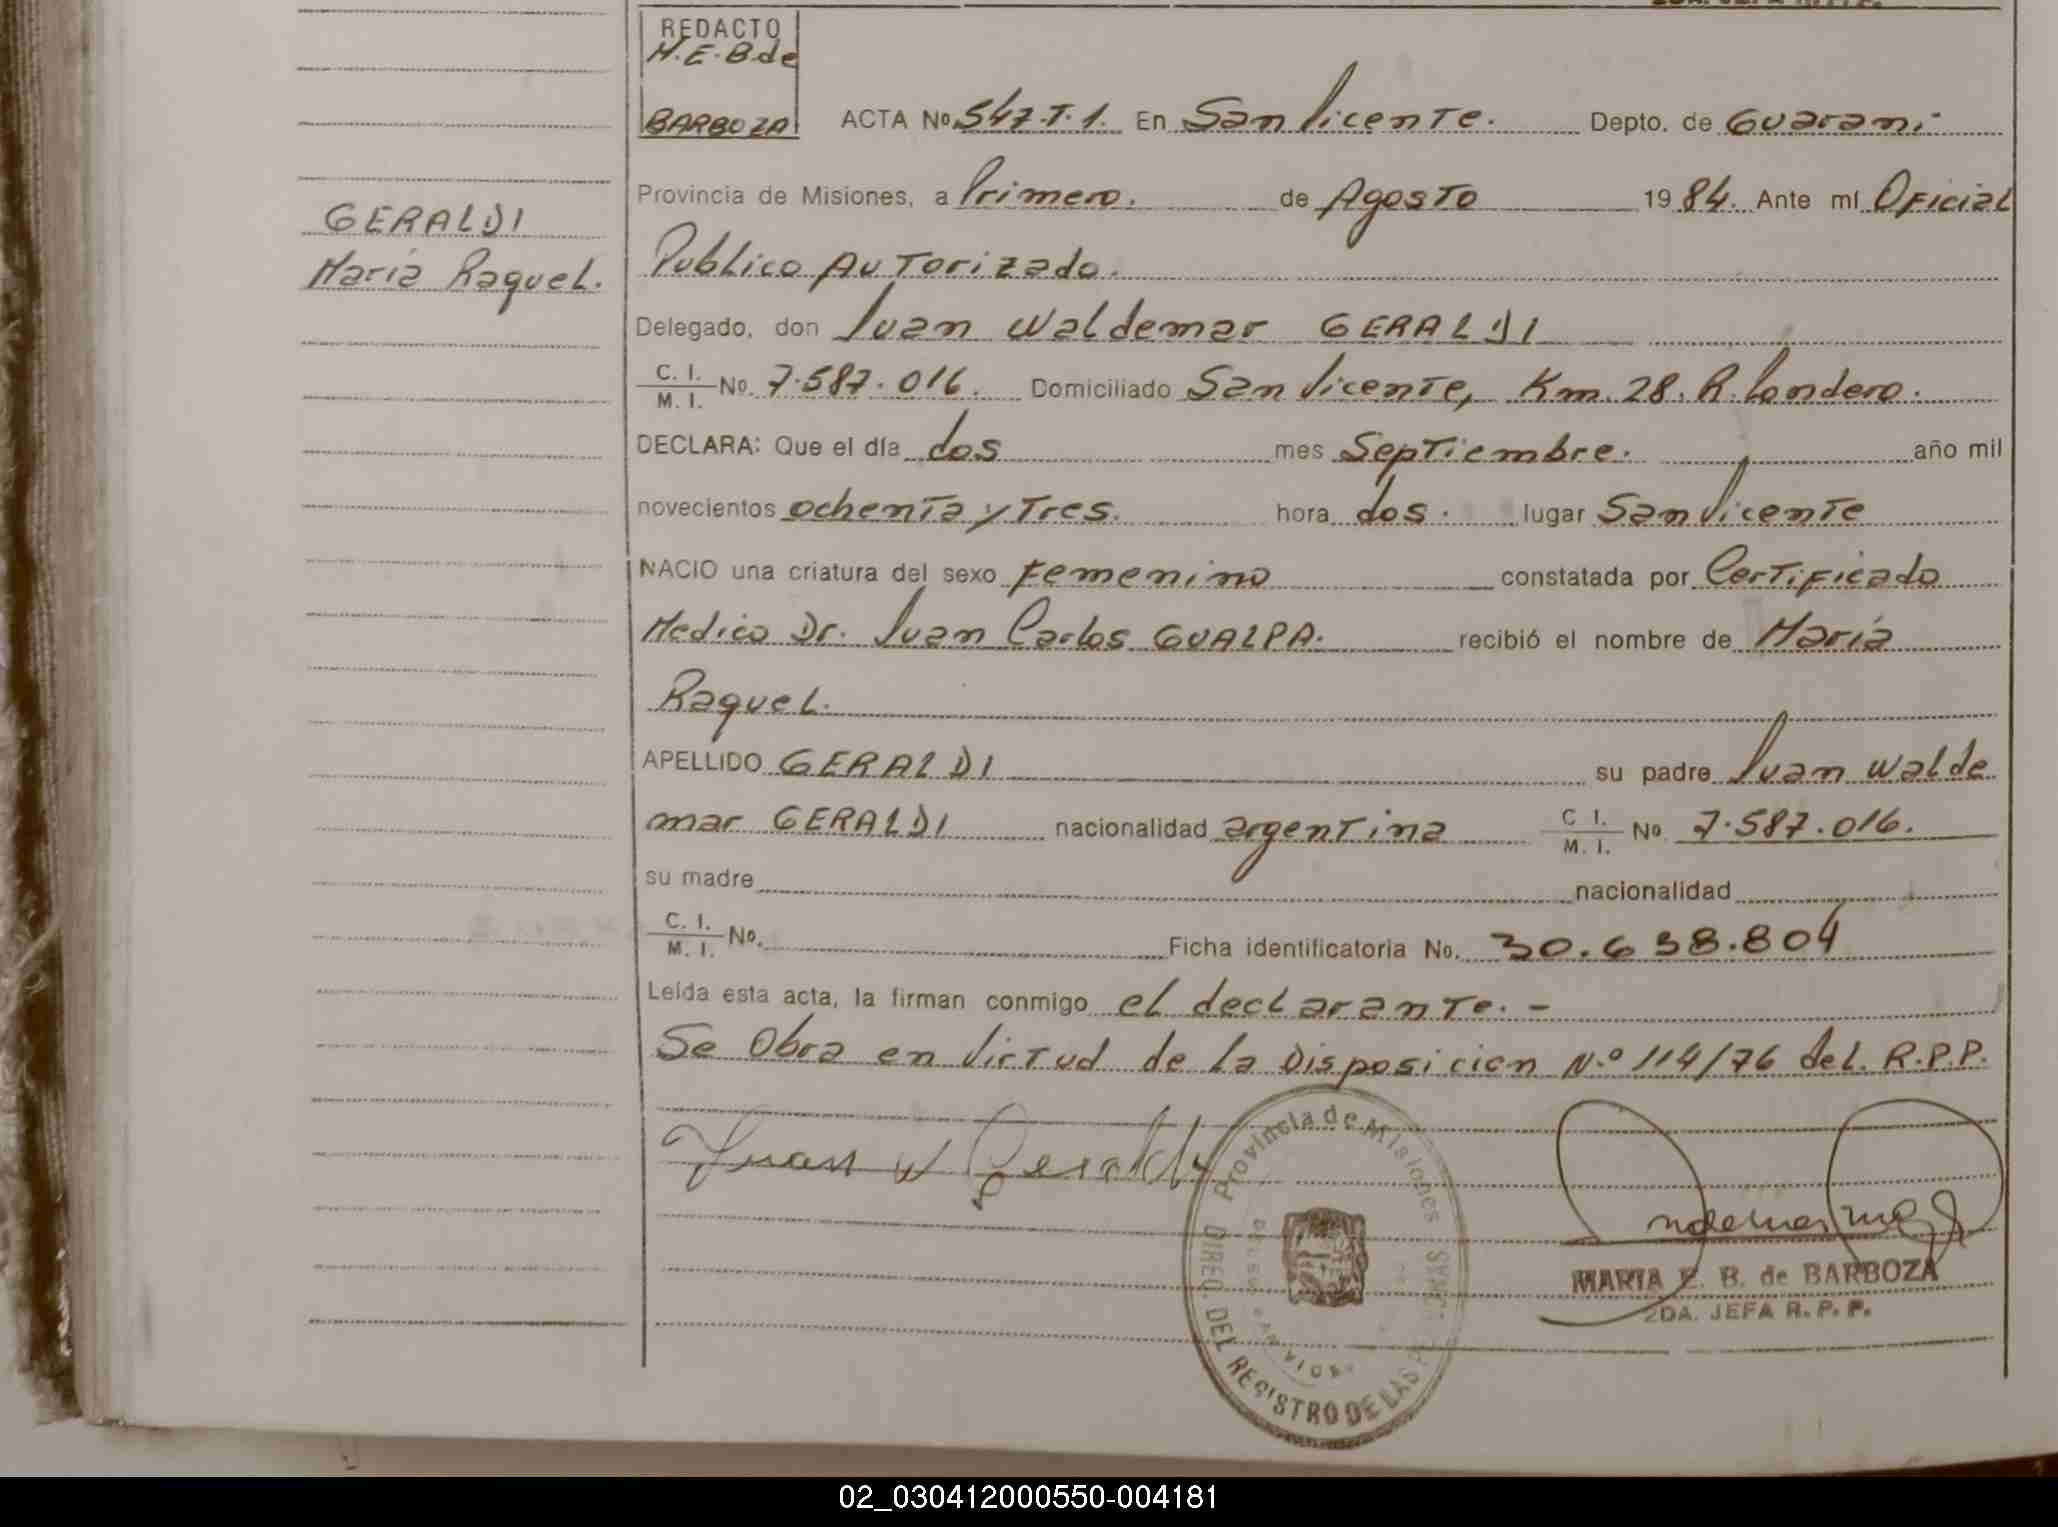 REDACTO
M.E.B de
BARBOZA
ACTA Nº 547.T.1. En San Vicente. Depto. de Guarani
Provincia de Misiones, a Primero. de Agosto 1984. Ante mí Oficial
GERALDI
Publico Autorizado.
Maria Raquel.
Delegado, don Juan Waldemar GERALDI
C. I.
M. I. Nº. 7.587.016. Domiciliado San Vicente, Km. 28. R. Londero.
DECLARA: Que el día dos mes Septiembre. año mil
novecientos ochenta y Tres. hora dos. lugar San Vicente
NACIO una criatura del sexo Femenino constatada por Certificado
Medico Dr. Juan Carlos GUALPA. recibió el nombre de María
Raquel.
APELLIDO GERALDI su padre Juan Walde
mar GERALDI nacionalidad argentina C I.
M. I. Nº. 7.587.016.
su madre nacionalidad
C. I.
M. I. Nº. Ficha identificatoria No. 30.638.804
Leída esta acta, la firman conmigo el declarante. -
Se Obra en Virtud de la Disposicion N.º 114/76 del. R.P.P.
Juan W Geraldi
Provincia de Misiones
DIREC. DEL REGISTRO DE LAS
MARIA E. B. de BARBOZA
2DA. JEFA R. P. P.
02_030412000550-004181